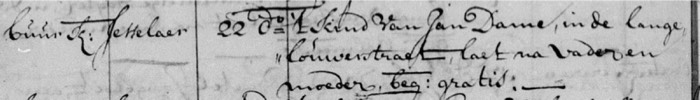 Buur k: Jesselaer 22 do 't kind van Jan Dame, in de lange
louwerstraet, laet na vader en
moeder, beg: gratis: